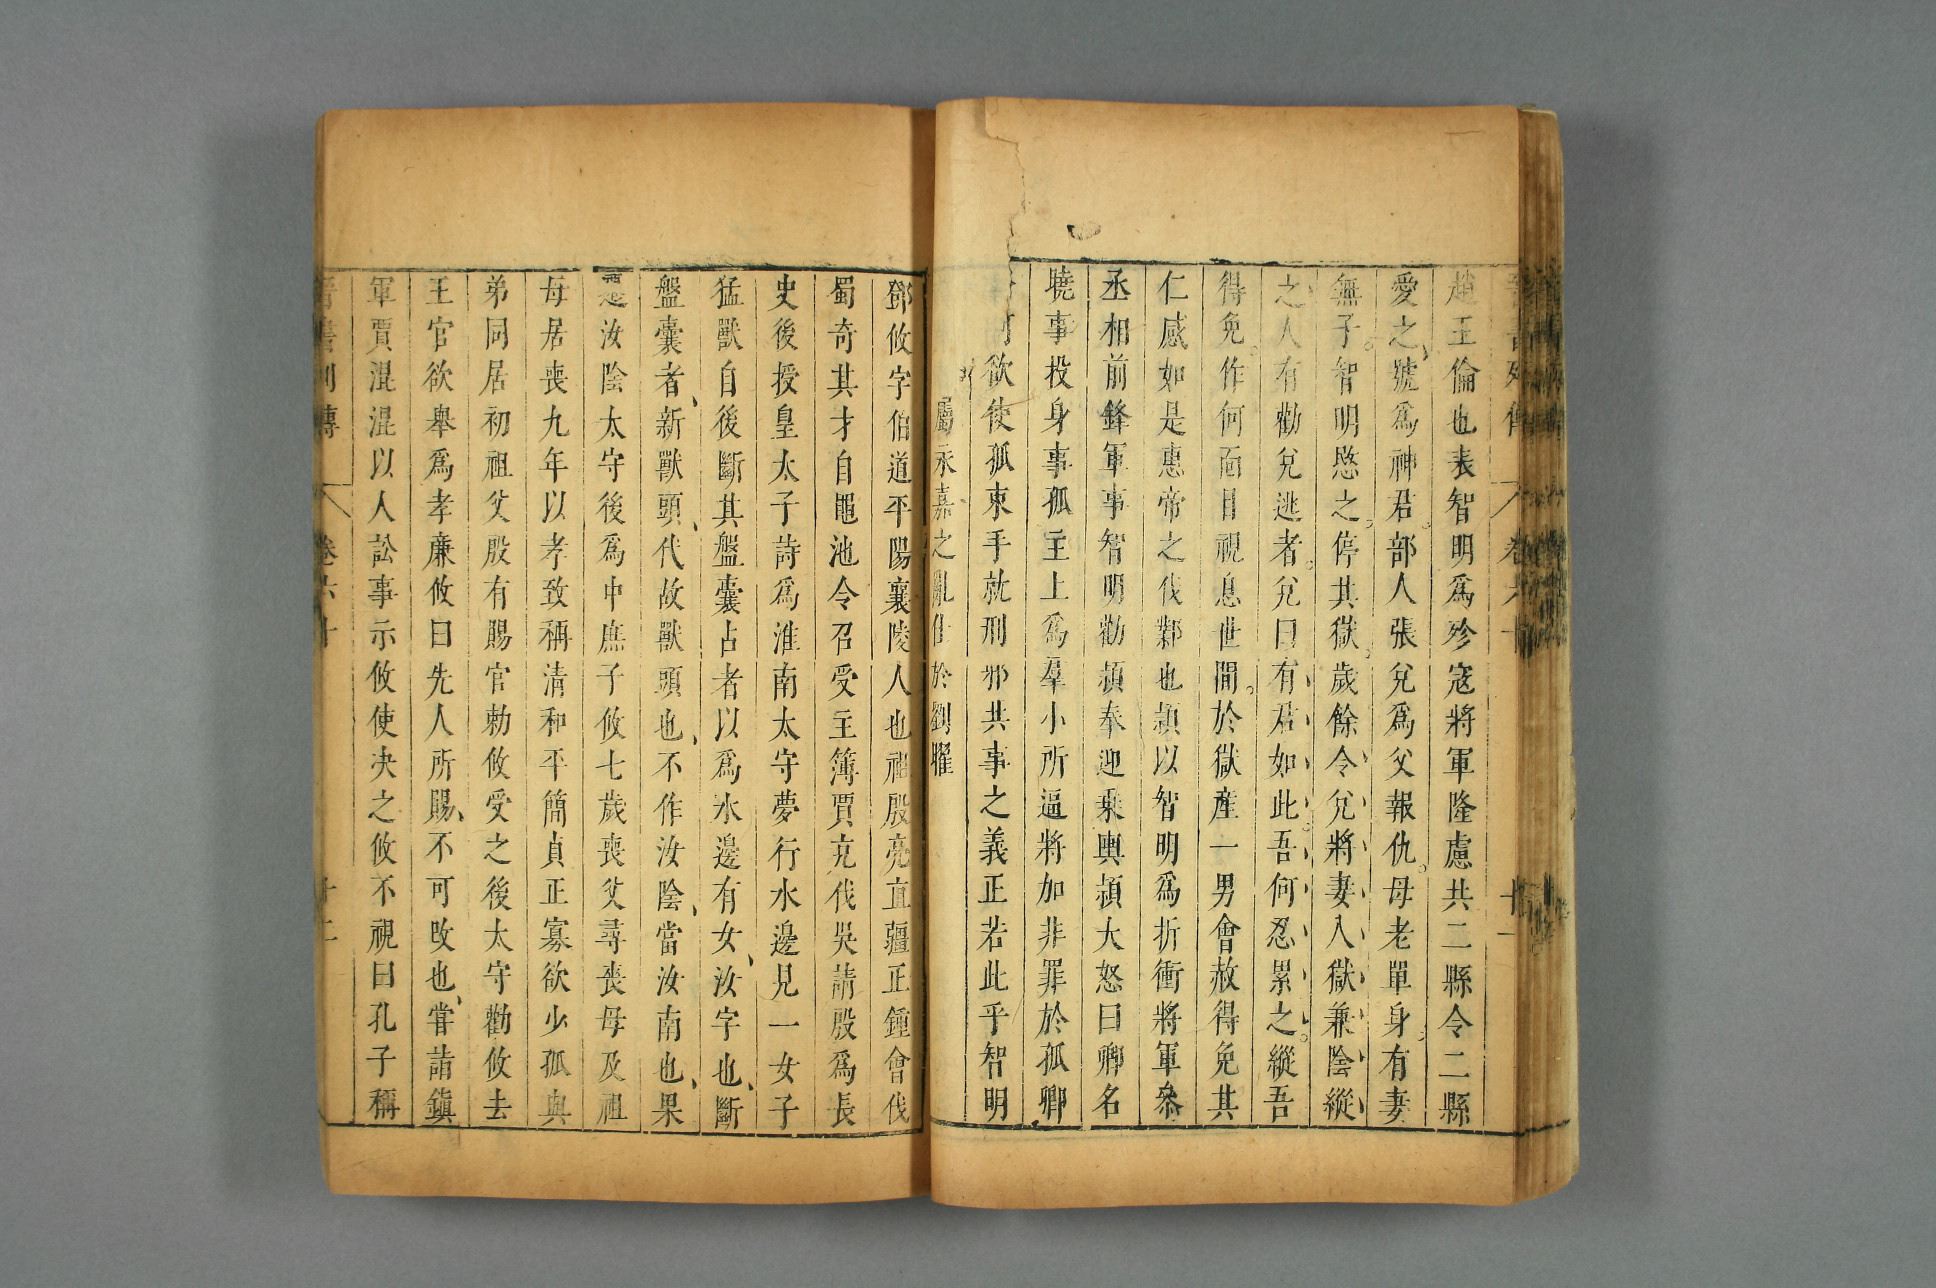 趙王倫也表智明爲殄寇將軍隆慮共二縣令二縣
愛之號爲神君部人張兌爲父報仇母老單身有妻
無子智明愍之停其獄歲餘令兌將妻入獄兼陰縱
之人有勸兌逃者兌曰有君如此吾何忍累之縱吾
得免作何面目視息世間於獄產一男會赦得免其
仁感如是惠帝之伐鄴也頴以智明爲折衝將軍叅
丞相前鋒軍事智明勸頴奉迎乗輿頴大怒曰卿名
曉事投身事孤主上爲羣小所逼將加非罪於孤卿
何欲使孤束手就刑邪共事之義正若此乎智明
屬永嘉之亂仕於劉曜
鄧攸字伯道平陽襄陵人也祖殷亮直疆正鍾會伐
蜀奇其才自黽池令召受主簿賈充伐吳請殷爲長
史後授皇太子詩爲淮南太守夢行水邊見一女子
猛獸自後斷其盤囊占者以爲水邊有女汝字也斷
盤囊者新獸頭代故獸頭也不作汝陰當汝南也果
遷汝陰太守後爲中庶子攸七歲喪父尋喪母及祖
母居喪九年以孝致稱清和平簡貞正寡欲少孤與
弟同居初祖父殷有賜官勅攸受之後太守勸攸去
王官欲舉爲孝廉攸曰先人所賜不可改也甞詣鎮
軍賈混混以人訟事示攸使决之攸不視曰孔子稱
晉書列傳 卷六十 十二